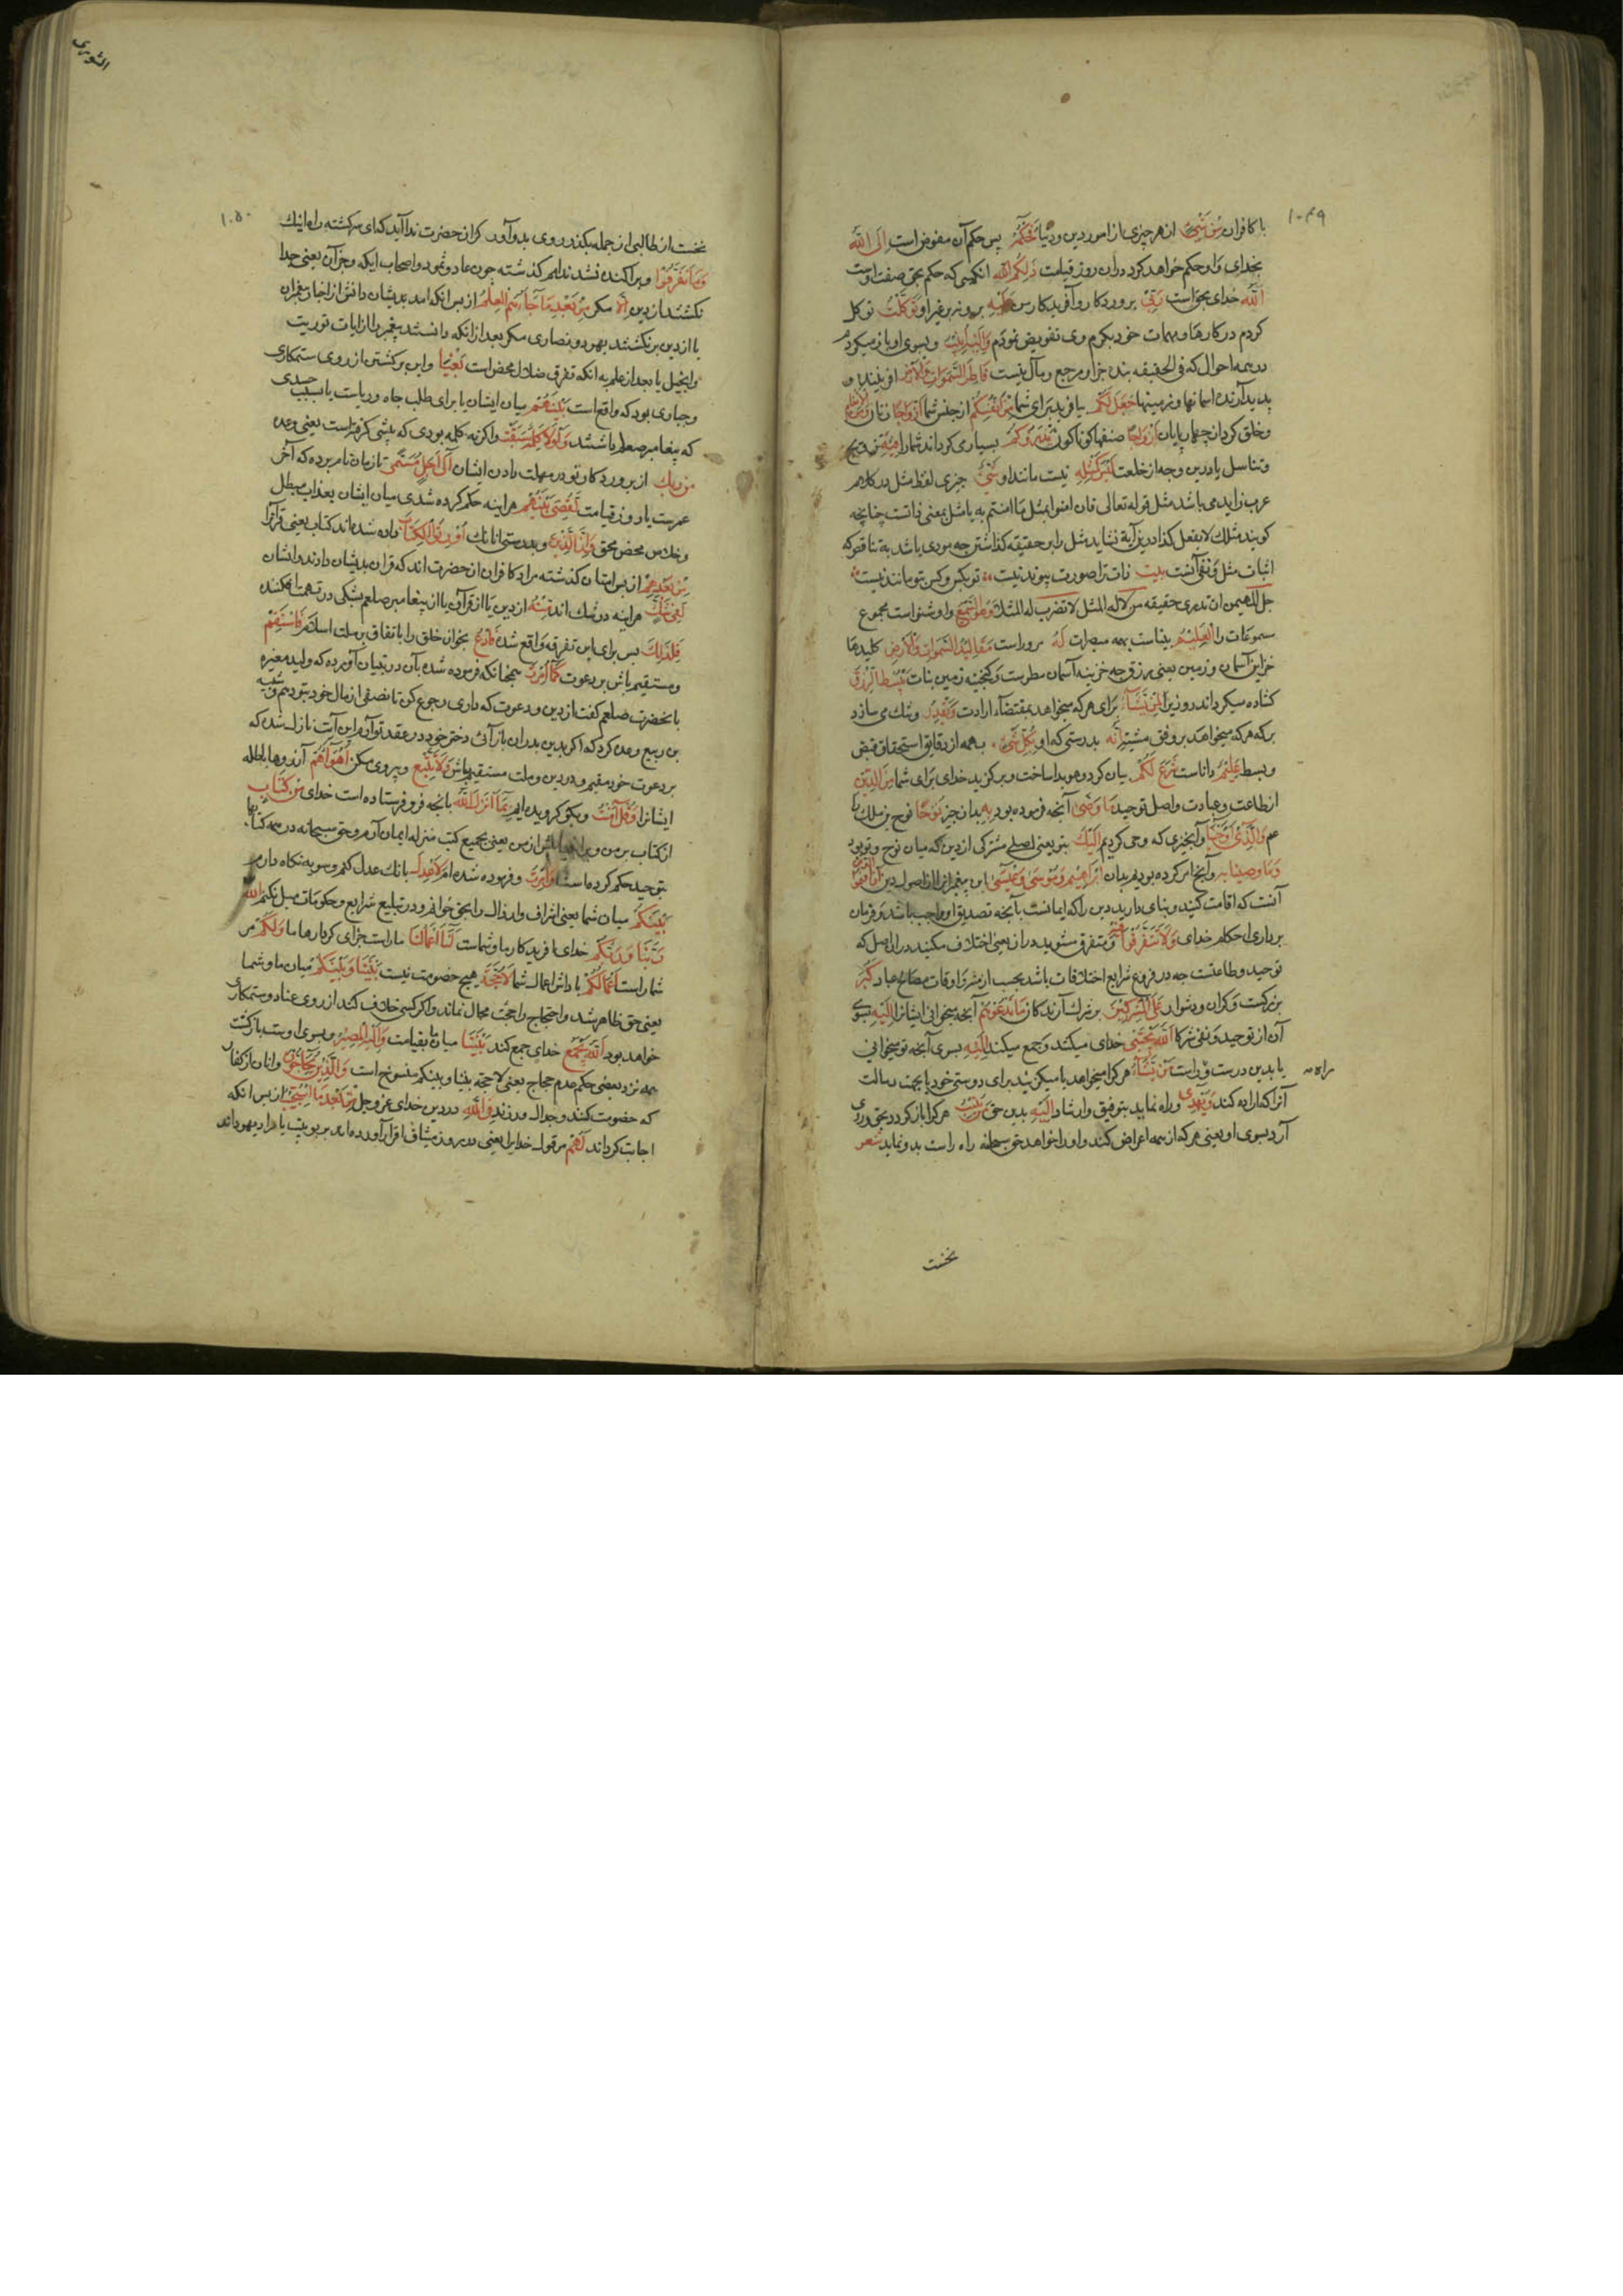 ۱۰۴۹
با کافران مِن شَیءٍ از هر چیزی از امور دین و دنیا فَحُکمُهُ پس حکم آن مفوض است اِلَی اللّٰهِ
بخدای و او حکم خواهد کرد دران روز قیامت ذٰلِکُمُ اللّٰهُ انکسی که حکم بحق صفت اوست
اللّٰه خدای بحق است رَبّی پروردکار و آفریدکار من عَلَیهِ برو نه بر غیر او تَوَکَّلتُ توکل
کردم در کارها و مهمات خود بکرم وی تفویض نمودم وَاِلَیهِ اُنِیبُ و بسوی او باز میکردم
در همه احوال که فی الحقیقه بنده جز او مرجع و مآل نیست فَاطِرُ السَّمٰوَاتِ وَالاَرضِ افریننده و
پدید آرنده اسمانها و زمینها جَعَلَ لَکُم بیافرید برای شما مِن اَنفُسِکُم از جنس شما اَزوَاجًا زنان وَمِنَ الاَنعَامِ
و خلق کرد از چهارپایان اَزوَاجًا صنفها کوناکون یَذرَؤُکُم بسیاری کرداند شما را فِیهِ تزویج
و تناسل یا درین وجه از خلعت لَیسَ کَمِثلِهِ نیست مانند او شَیءٌ چیزی لفظ مثل در کلام
عرب زاید می باشد مثل قوله تعالی فان امنوا بمثل ما امنتم به یا مثل بمعنی ذاتست چنانچه
کویند مثلک لا یفعل کذا درین آیة نشاید مثل را بر حقیقه کذاشتن چه مودی باشد به تناقض که
اثبات مثل و نفی آنست بیت ذات ترا صورت پیوند نیست تو بکس و کس بتو مانند نیست
جل المهیمن ان تدری حقیقه من لا له المثل لا تضرب له المثلا وَهُوَ السَّمِیعُ و او شنواست مجموع
سموعات را العَلِیمُ بیناست بهمه مبصرات لَهُ مروراست مَقَالِیدُ السَّمٰوَاتِ وَالاَرضِ کلیدهاء
خزاین آسمان و زمین یعنی رزق چه خزینه آسمان مطرست و کنجینه زمین بنات یَبسُطُ الرِّزقَ
کشاده میکرداند روزیرا لِمَن یَشَاءُ برای هر که میخواهد بمقتضاء ارادت وَیَقدِرُ و تنک می سازد
بر که هر که میخواهد بر وفق مشیت اِنَّهُ بدرستی که او بِکُلِّ شَیءٍ بهمه از دقایق استحقاق قبض
و بسط عَلِیمٌ داناست شَرَعَ لَکُم بیان کرد و هویدا ساخت و برکزید خدای برای شما مِنَ الدِّینِ
از طاعت و عبادت و اصل توحید مَا وَصّٰی آنچه فرموده بود بِهِ بدان چیز نُوحًا نوح بن ملک را
عم وَالَّذِی اَوحَینَا و آنچیزی که وحی کردیم اِلَیکَ بتو یعنی اصلی مشترکی از دین که میان نوح و تو بود
وَمَا وَصَّینَا بِهِ و آنچه امر کرده بودیم بدان اِبرٰهِیمَ وَمُوسٰی وَعِیسٰی این پیغمبرانرا از اصول دین اَن اَقِیمُوا
آنست که اقامت کنید و بپای دارید دین را که ایمانست بآنچه تصدیق او واجب باشد و فرمان
برداری احکام خدای وَلاَ تَتَفَرَّقُوا فِیهِ و متفرق مشوید دران یعنی اختلاف مکنید در این اصل که
توحید و طاعتست چه در فروع شرایع اختلافات باشد بحسب از مشرق و اوقات مصالح عباد کَبُرَ
بزرکست و کران و دشوار عَلَی المُشرِکِینَ بر شرک آرندکان مَا تَدعُوهُم آنچه میخوانی ایشانرا اِلَیهِ بسوی
آن از توحید و نفی شرکا اَللّٰهُ یَجتَبِی خدای میکند و جمع میکند اِلَیهِ بسوی آنچه تو میخوانی
یا بدین درست و راست مَن یَشَاءُ هر کرا میخواهد یا میکزیند برای دوستی خود یا بجهت رسالت
راه
آنرا که اراده کند وَیَهدِی و راه نماید بتوفیق و ارشاد اِلَیهِ بدین حق مَن یُنِیبُ هر کرا باز کردد بحق و روی
آرد بسوی او یعنی هر که از همه اعراض کند و او را خواهد حق سبحانه راه راست بدو نماید شعر
نخست
الشوری
۱۰۵۰
نخست از طالبی از جمله بکذر روی بدو آور کزان حضرت ندا آید که ای سرکشته راه اینک
وَمَا تَفَرَّقُوا و پراکنده نشدند امم کذشته چون عاد و ثمود و اصحاب ایکه و جز آن یعنی جدا
نکشتند از دین اِلاَّ مکر مِن بَعدِ مَا جَاءَهُمُ العِلمُ از پس انکه امد بدیشان دانش از اخبار پیغمبران
یا از دین برنکشتند یهود و نصاری مکر بعد از انکه دانستند پیغمبر را از ایات توریت
و انجیل یا بعد از علم به انکه تفرق ضلال محض است بَغیًا و این برکشتن از روی ستمکاری
و جباری بود که واقع است بَینَهُم میان ایشان یا برای طلب جاه و ریاست یا بسبب حسدی
که پیغامبر صعلم باشتند وَلَولاَ کَلِمَةٌ سَبَقَت و اکر نه کلمه بودی که پیشی کرفتست یعنی وعده
مِن رَبِّکَ از پروردکار تو در مهلت دادن ایشان اِلٰی اَجَلٍ مُسَمًّی تا زمان نام برده که آخر
عمرست یا روز قیامت لَقُضِیَ بَینَهُم هر اینه حکم کرده شدی میان ایشان بعذاب مبطل
و خلاص محض محق وَاِنَّ الَّذِینَ و بدرستی انانک اُورِثُوا الکِتَابَ داده شده اند کتاب یعنی قرآنرا
مِن بَعدِهِم از پس امتان کذشته مراد کافران ان حضرت اند که قران بدیشان دادند و ایشان
لَفِی شَکٍّ هر اینه در شک اند مِنهُ از دین یا از قرآن یا از پیغامبر صلعم بشکی در تهمت افکنده
فَلِذٰلِکَ پس برای این تفرقه واقع شده فَادعُ بخوان خلق را باتفاق بر ملت اسلام وَاستَقِم
و مستقیم باش بر دعوت کَمَا اُمِرتَ همچنانکه فرموده شده بآن در تبیان آورده که ولید مغیره
با نحضرت صلعم کفت از دین و دعوت که داری رجوع کن تا نصفی از مال خود بتو دهم و شیبه
بن ربیع وعده کرد که اکر بدین پدران باز آئی دختر خود در عقد تو آرم این آیت نازل شد که
بر دعوت خود مقیم و در دین و ملت مستقیم باش وَلاَ تَتَّبِع و پیروی مکن اَهوَآءَهُم آرزوها باطله
ایشانرا وَقُل اٰمَنتُ و بکو کرویده ایم بِمَا اَنزَلَ اللّٰهُ بانچه فرو فرستاده است خدای مِن کِتَابٍ
از کتاب بر من و بر پیش از من یعنی بجمیع کتب منزله ایمان آرم و حق سبحانه در همه کتابها
بتوحید حکم کرده است وَاُمِرتُ و فرموده شده ام لِاَعدِلَ بانک عدل کنم و سویه نکاه دارم
بَینَکُم میان شما یعنی اشراف و ارذال را بحق خوانم و در تبلیغ شرایع و حکومات میل نکنم اَللّٰهُ
رَبُّنَا وَرَبُّکُم خدای افریدکار ما و شماست لَنَا اَعمَالُنَا ماراست جزای کردارهاء ما وَلَکُم مر
شماراست اَعمَالُکُم پاداش اعمال شما لاَ حُجَّةَ هیچ خصومت نیست بَینَنَا وَبَینَکُم میان ما و شما
یعنی حق ظاهر شد و احتجاج را حجت مجال نماند و اکر کسی خلاف کند از روی عناد و ستمکاری
خواهد بود اَللّٰهُ یَجمَعُ خدای جمع کند بَینَنَا میان ما بقیامت وَاِلَیهِ المَصِیرُ و بسوی اوست بازکشت
همه نزد بعضی حکم عدم حجاج یعنی لا حجة بیننا و بینکم منسوخ است وَالَّذِینَ یُحَاجُّونَ و انان از کفار
که خصومت کنند و جدال ورزند فِی اللّٰهِ در دین خدای عز و جل مِن بَعدِ مَا استُجِیبَ از پس انکه
اجابت کرده اند لَهُ مر قول خدایرا یعنی در روز میثاق اقرار آورده اند بربوبیت یا مراد یهود اند